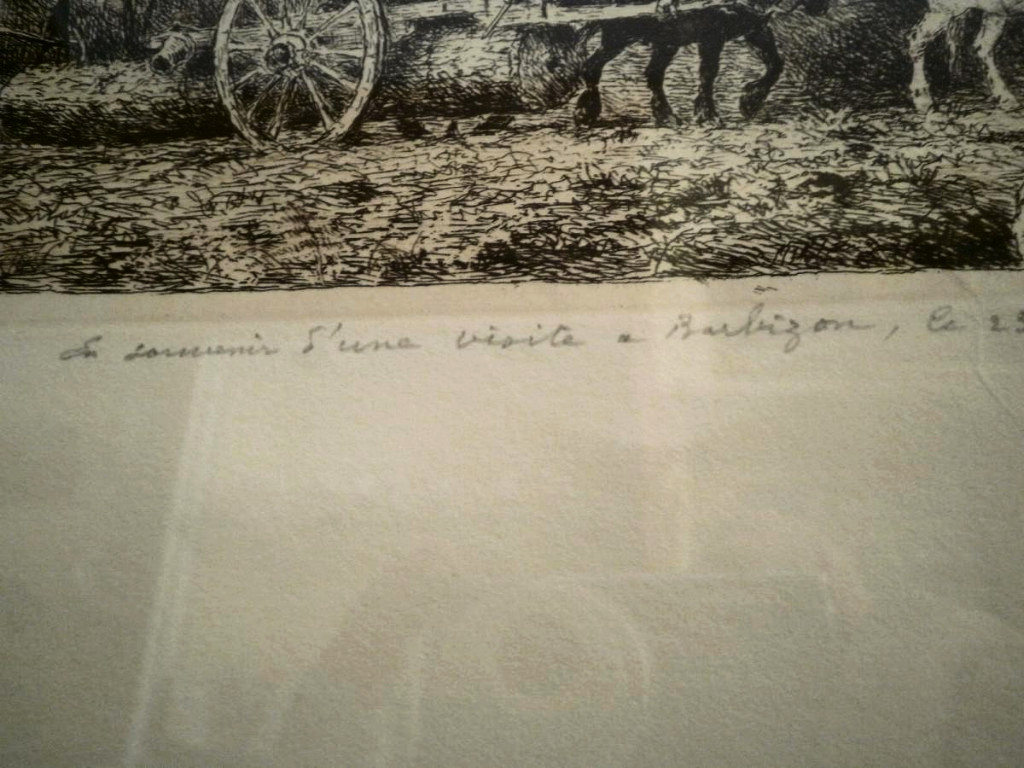 En souvenir d'une visite a Barbizon, le 23